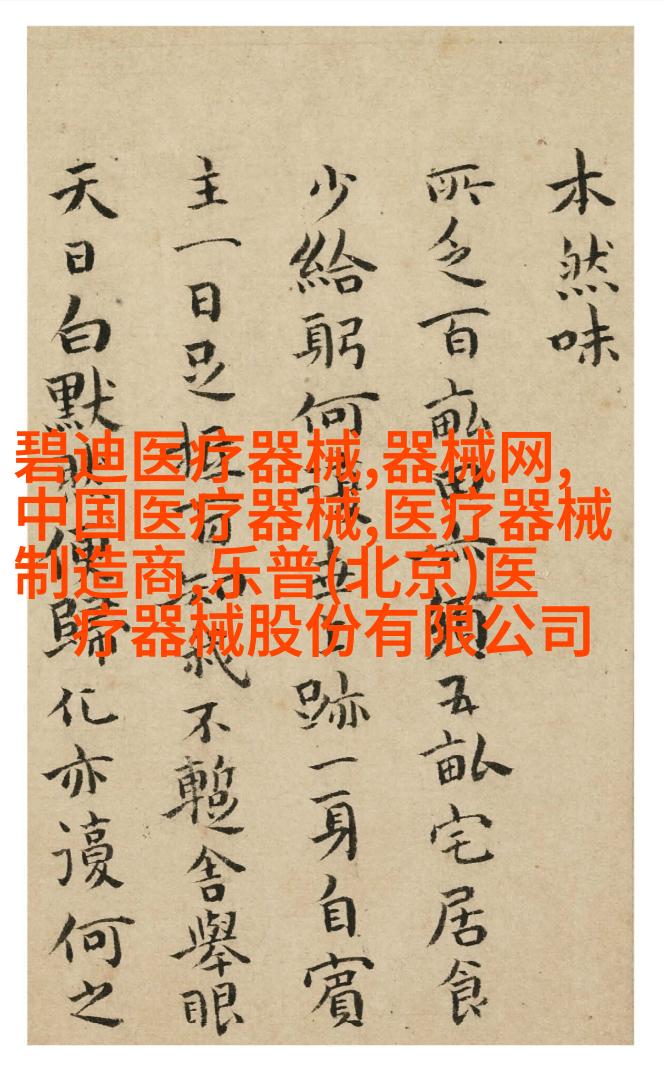 本然味
所乏百畝五畝宅居食
少給躬何跡一身自賓
主一日足我不暫舍舉眼
天日白默便歸化亦謾何之
碧迪医疗器械,器械网,
中国医疗器械,医疗器械
制造商,乐普(北京)医
疗器械股份有限公司